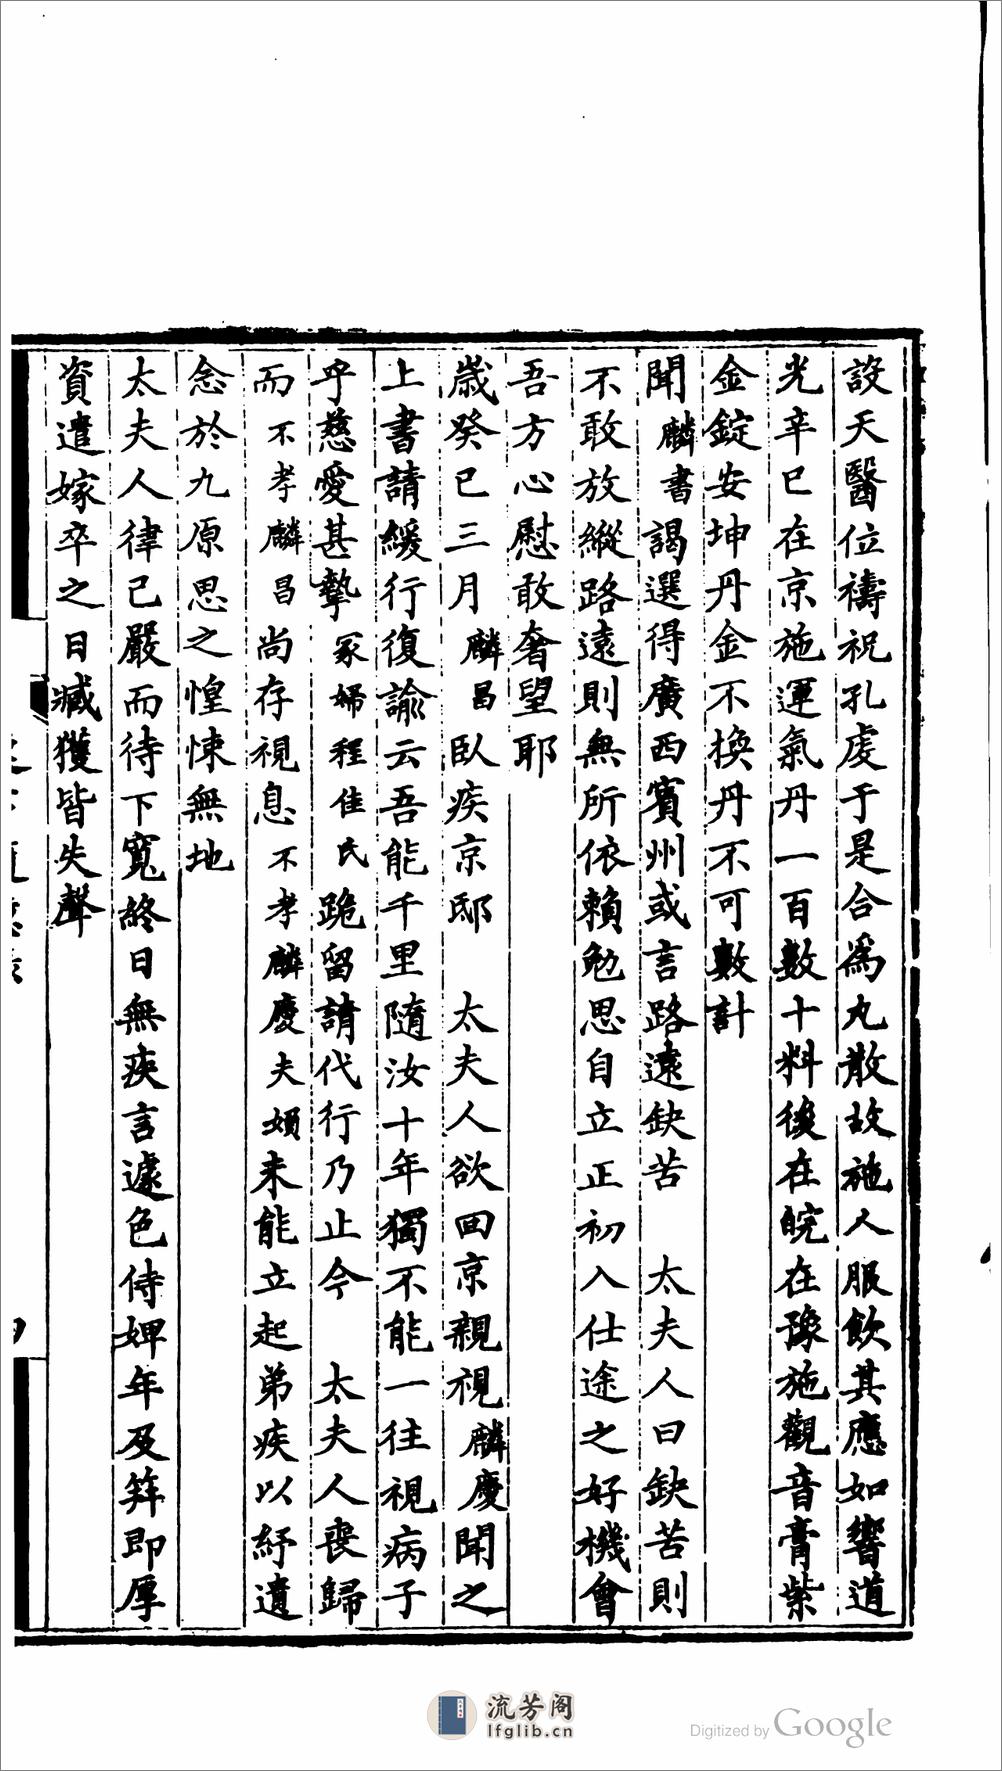 設天醫位禱祝孔虔于是合爲丸散故施人服飲其應如響道
光辛巳在京施運氣丹一百數十料後在皖在豫施觀音膏紫
金錠安坤丹金不換丹不可數計
聞麟書謁選得廣西賓州或言路遠缺苦　太夫人曰缺苦則
不敢放縱路遠則無所依賴勉思自立正初入仕途之好機會
吾方心慰敢奢望耶
歲癸巳三月麟昌臥疾京邸　太夫人欲回京親視麟慶聞之
上書請緩行復諭云吾能千里隨汝十年獨不能一往視病子
乎慈愛甚摯冢婦程佳氏跪留請代行乃止今　太夫人喪歸
而不孝麟昌尚存視息不孝麟慶夫婦未能立起弟疾以紓遺
念於九原思之惶悚無地
太夫人律己嚴而待下寬終日無疾言遽色侍婢年及筓即厚
資遣嫁卒之日臧獲皆失聲
流芳阁
lfglib.cn
Digitized by Google